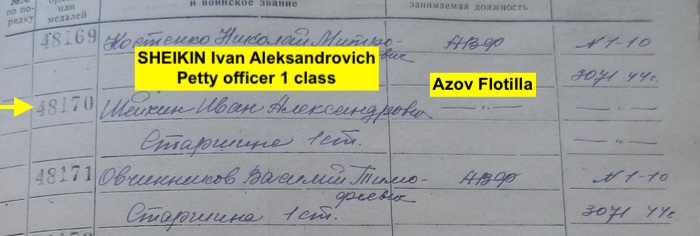 №№ по порядку
орденов или медалей
и воинское звание
занимаемая должность
48169 Костенко Николай Митрофаевич АВФ N 1-10
SHEIKIN Ivan Aleksandrovich
Petty officer 1 class
30 71 44г.
Azov Flotilla
48170 Шейкин Иван Александрович — " — — " —
Старшине 1 ст. — " —
48171 Овчинников Василий Тимофеевич АВФ N 1-10
Старшина 1 ст. 30 71 44г.